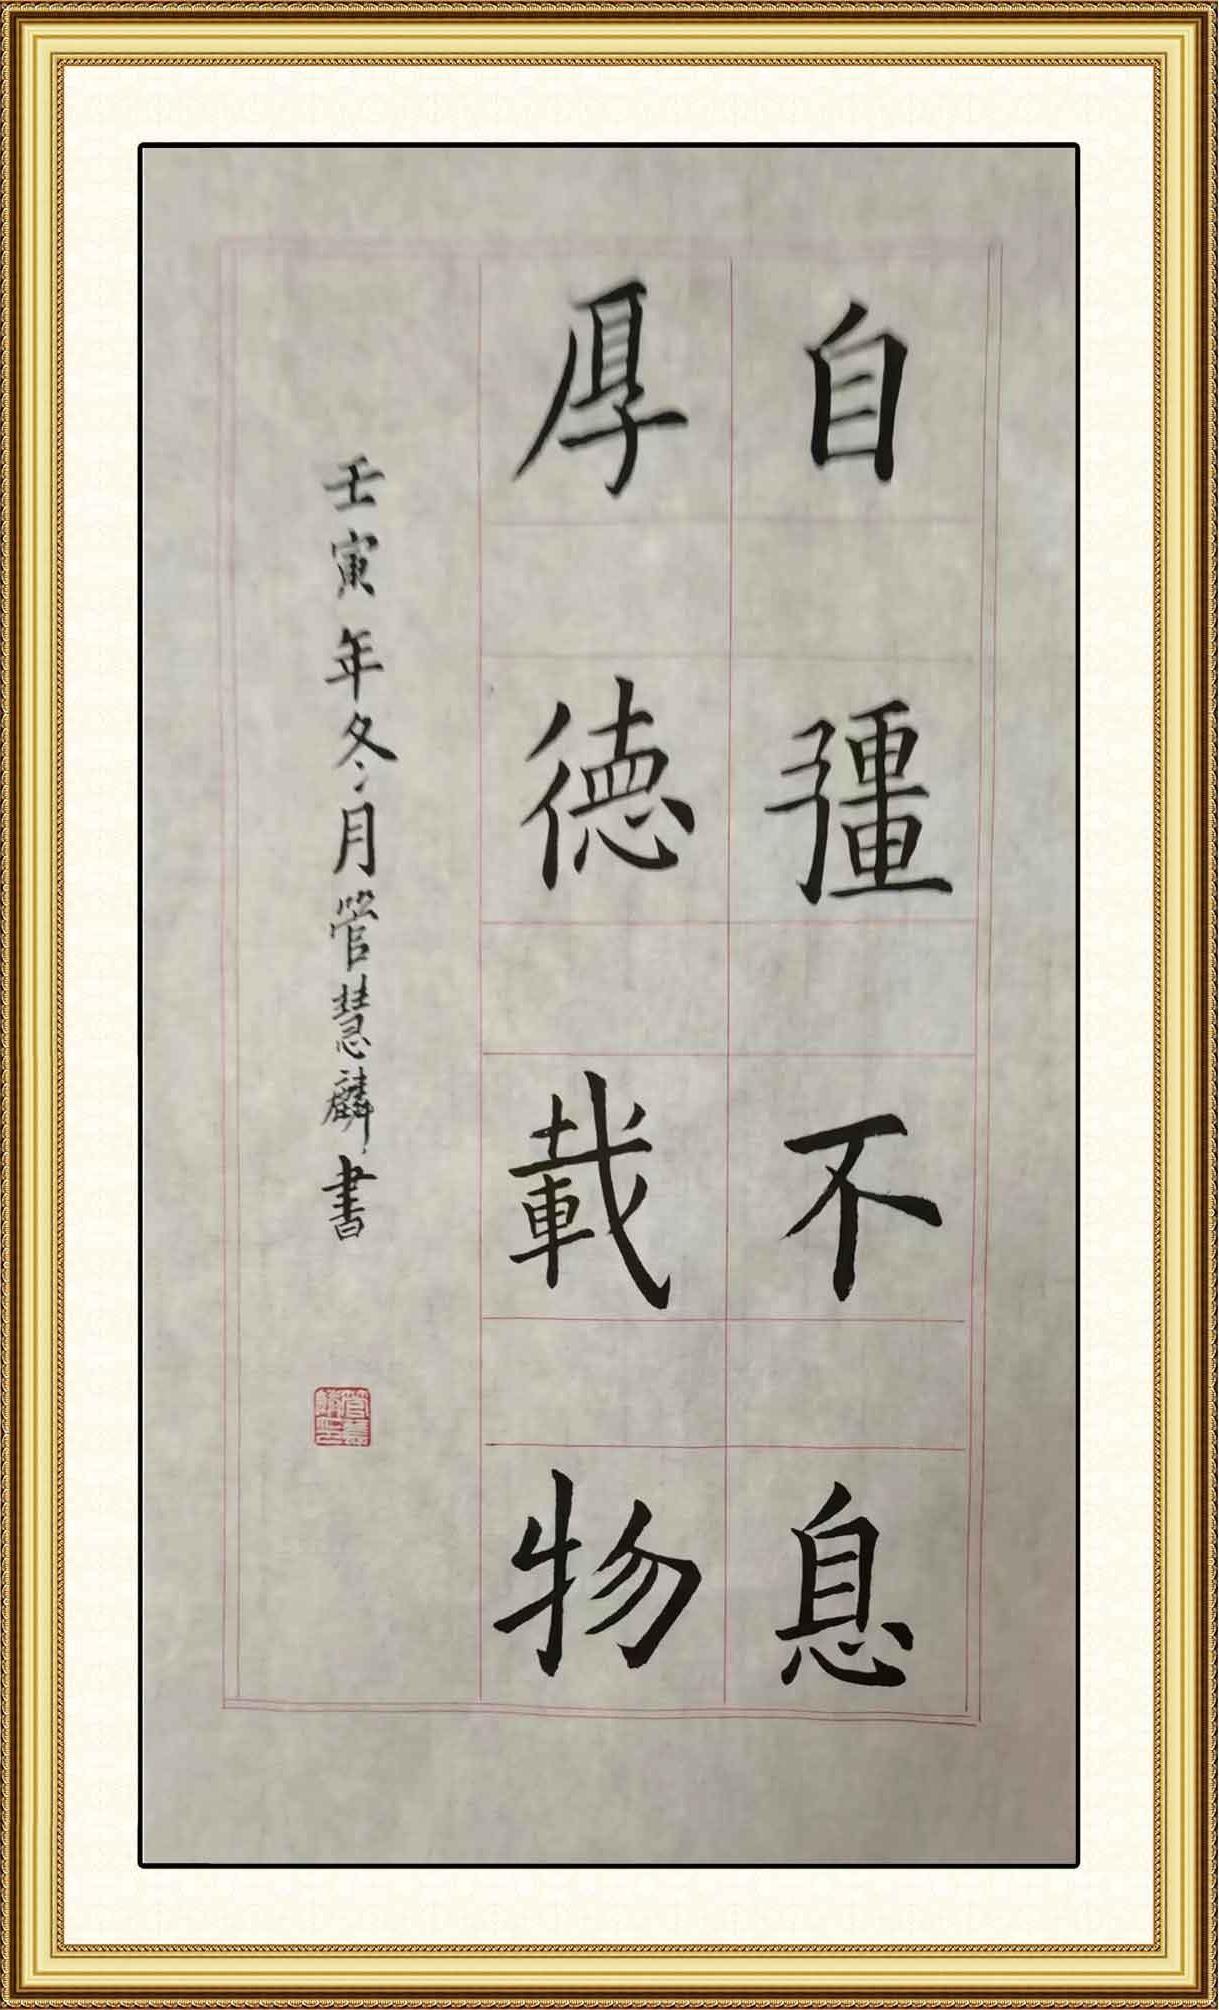 自彊不息
厚德載物
壬寅年冬月管慧麟書
管慧麟印